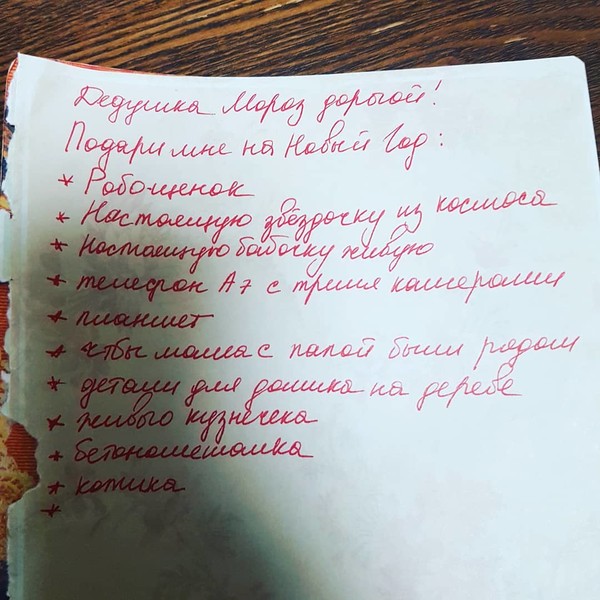 Дедушка Мороз дорогой!
Подари мне на Новый Год:
* Робощенок
* Настоящую звёздочку из космоса
* Настоящую бабочку живую
* телефон А7 с тремя камерами
* планшет
* чтбы мама с папой были рядом
* детали для домика на дереве
* живого кузнечека
* бетономешалка
* котика
*